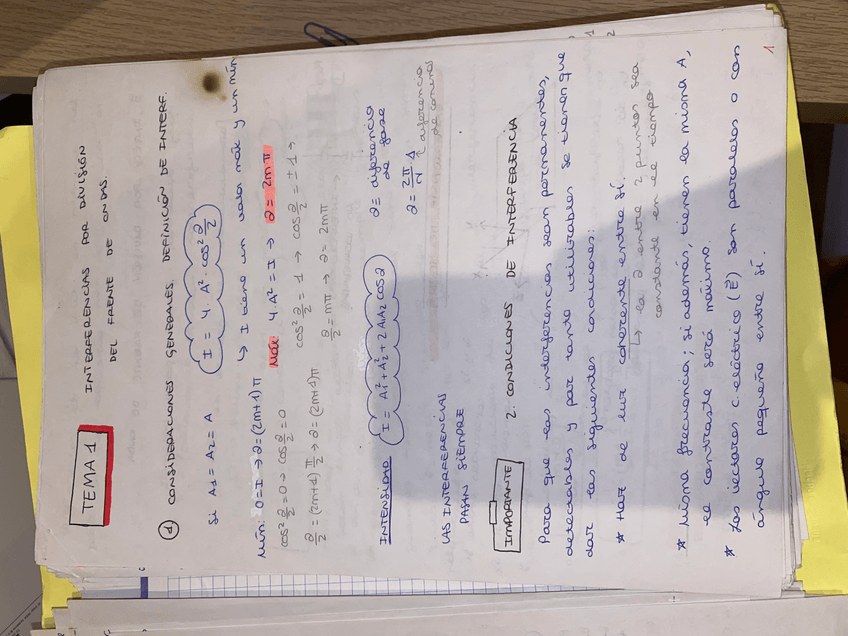 TEMA 1
INTERFERENCIAS POR DIVISIÓN
DEL FRENTE DE ONDAS.
① CONSIDERACIONES GENERALES. DEFINICIÓN DE INTERF.
Si A1 = A2 = A
I = 4 A² · cos² ∂/2
↳ I tiene un valor máx y un mín
Mín: 0=I → ∂=(2m+1)π
Máx 4A² = I → ∂ = 2mπ
cos² ∂/2 = 0 → cos ∂/2 = 0
cos² ∂/2 = 1 → cos ∂/2 = ±1 →
∂/2 = (2m+1) π/2 → ∂ = (2m+1)π
∂/2 = mπ → ∂ = 2mπ
INTENSIDAD
I = A1² + A2² + 2A1A2 cos ∂
∂ = diferencia
de fase
∂ = 2π/λ Δ
diferencia
de caminos
LAS INTERFERENCIAS
PASAN SIEMPRE
IMPORTANTE
2. CONDICIONES DE INTERFERENCIA
Para que las interferencias sean permanentes,
detectables y por tanto utilizables se tienen que
dar las siguientes condiciones:
★ Haz de luz coherente entre sí.
↳ la ∂ entre 2 puntos sea
constante en el tiempo
★ Misma frecuencia; si además, tienen la misma A,
el contraste será máximo.
★ Los vectores c. eléctrico (E⃗) son paralelos o con
ángulo pequeño entre sí.
1
1
2